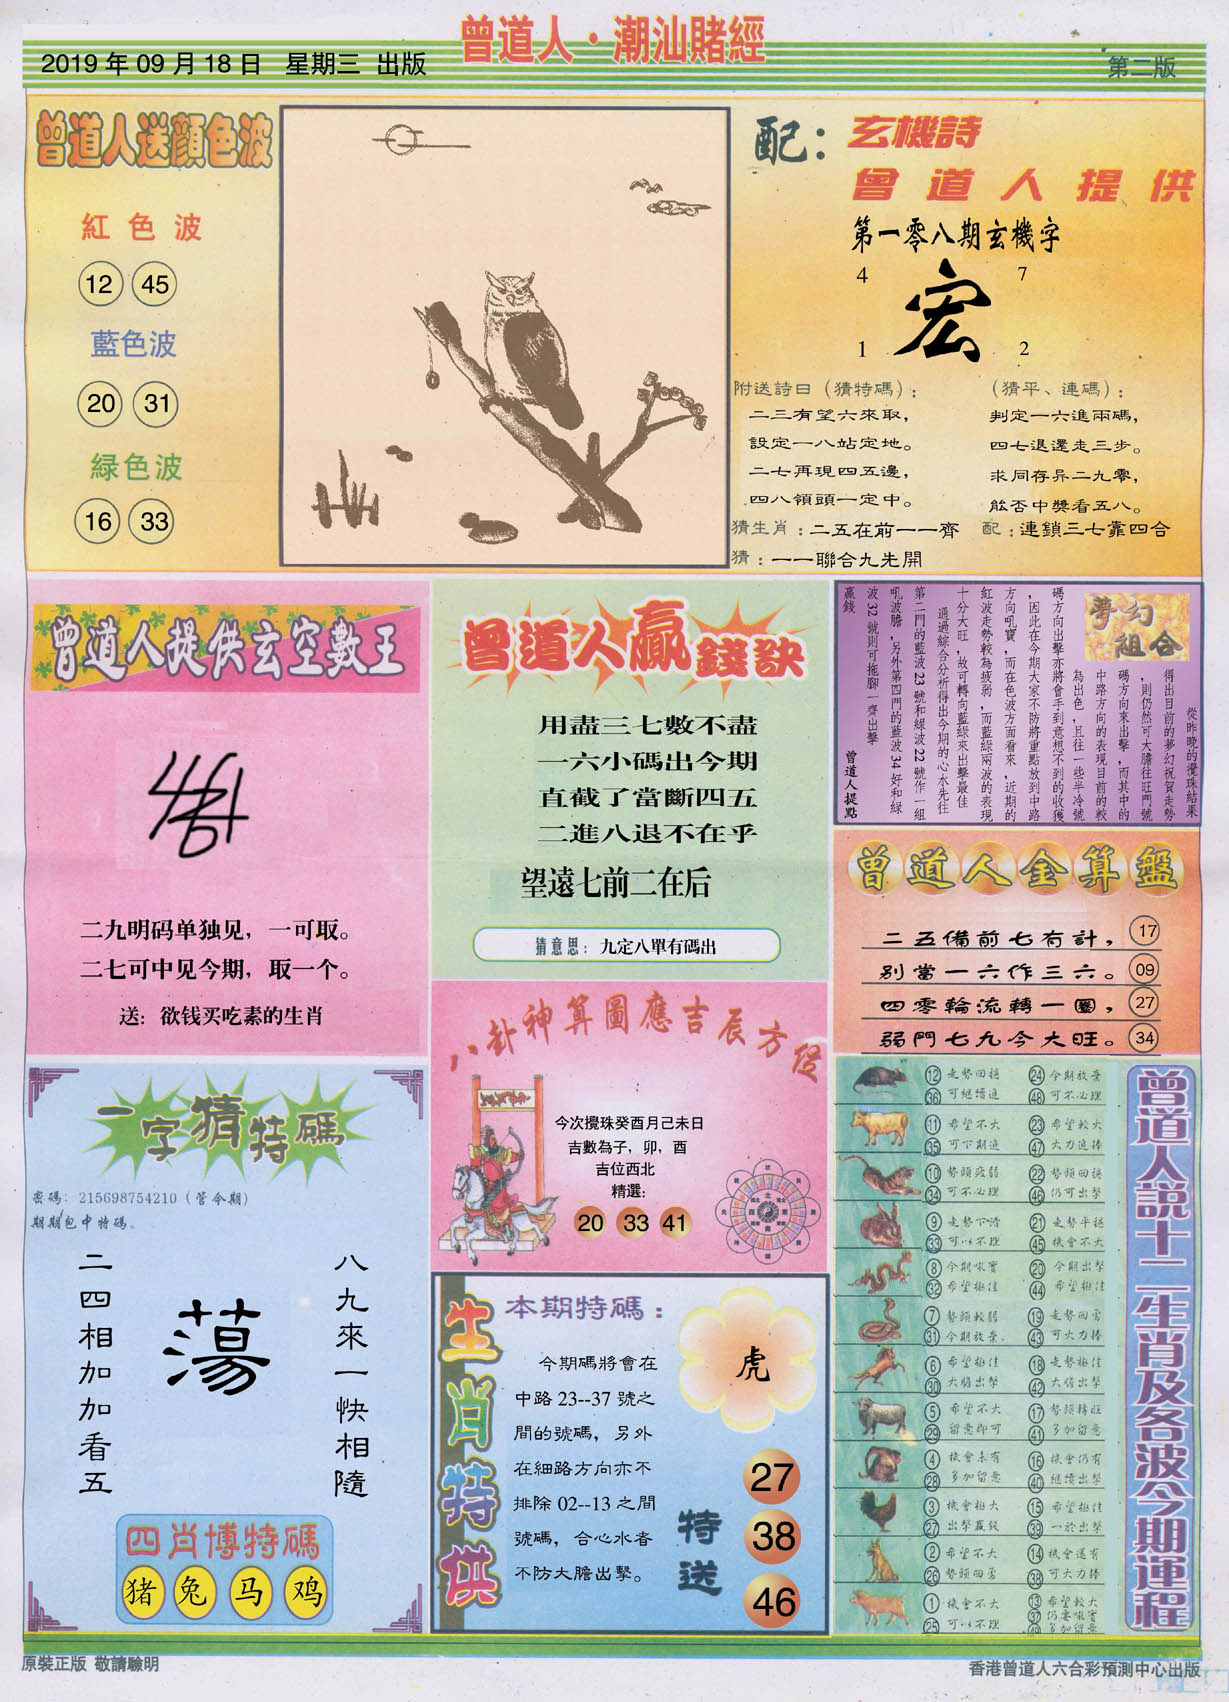 曾道人·潮汕賭經
2019年09月18日 星期三 出版
第二版
曾道人送顏色波
紅色波
12 45
藍色波
20 31
緑色波
16 33
配：玄機詩
曾道人提供
第一零八期玄機字
4 7
宏
1 2
附送詩曰（猜特碼）：
二三有望六來取，
設定一八站定地。
二七再現四五邊，
四八領頭一定中。
（猜平、連碼）：
判定一六進兩碼，
四七退還走三步。
求同存异二九零，
能否中獎看五八。
猜生肖：二五在前一一齊
配：連鎖三七靠四合
猜：一一聯合九先開
曾道人提供玄空數王
二九明码单独见，一可取。
二七可中见今期，取一个。
送：欲钱买吃素的生肖
曾道人贏錢訣
用盡三七數不盡
一六小碼出今期
直截了當斷四五
二進八退不在乎
望遠七前二在后
猜意思：九定八單有碼出
夢幻
組合
從昨晚的攪珠結果
得出目前的夢幻祝賀走勢
，則仍然可大膽往旺門號
碼方向來出擊，而其中的
中路方向的表現目前的較
為出色，且往一些半冷號
碼方向出擊亦將會手到意想不到的收獲
，因此在今期大家不防將重點放到中路
方向吼寶，而在色波方面看來，近期的
紅波走勢較為疲弱，而藍綠兩波的表現
十分大旺，故可轉向藍綠來出擊最佳
通過綜合分析得出今期的心水先往
第二門的藍波23號和綠波22號作一組
吼波膽，另外第四門的藍波34好和綠
波32號則可拖腳一齊出擊
贏錢
曾道人提點
曾道人金算盤
二五備前七有計， 17
別當一六作三六。 09
四零輪流轉一圈， 27
弱門七九今大旺。 34
八卦神算圖應吉辰方位
今次攪珠癸酉月己未日
吉數為子，卯，酉
吉位西北
精選：
20 33 41
一字猜特碼
密碼：215698754210（管今期）
期期包中特碼。
八九來一快相隨
蕩
二四相加加看五
四肖博特碼
猪 兔 马 鸡
生肖特供
本期特碼：
虎
今期碼將會在
中路23--37號之
間的號碼，另外
在細路方向亦不
排除02--13之間
號碼，合心水者
不防大膽出擊。
特送
27
38
46
曾道人説十二生肖及各波今期運程
12 36 走勢回穩 可繼續進
24 48 今期放棄 可不必理
11 35 希望不大 可下期進
23 47 希望較大 大力進捧
10 34 勢頭疲弱 可不必理
22 46 勢頭回穩 仍可出擊
9 33 走勢下滑 可以不理
21 45 走勢平穩 機會不大
8 32 今期吼寶 希望極佳
20 44 今期出擊 希望極佳
7 31 勢頭較弱 今期放棄
19 43 走勢回勇 可大力捧
6 30 希望極佳 大膽出擊
18 42 走勢極佳 大膽出擊
5 29 希望不大 留意即可
17 41 勢頭轉旺 多加留意
4 28 機會未有 多加留意
16 40 機會仍有 繼續出擊
3 27 機會極大 出擊贏錢
15 39 希望極佳 一於出擊
2 26 希望不大 勢頭回勇
14 38 機會還有 可大力捧
1 25 機會不大 可以不理
13 37 49 希望較大 仍要吼實 多加留意
原裝正版 敬請驗明
香港曾道人六合彩預測中心出版